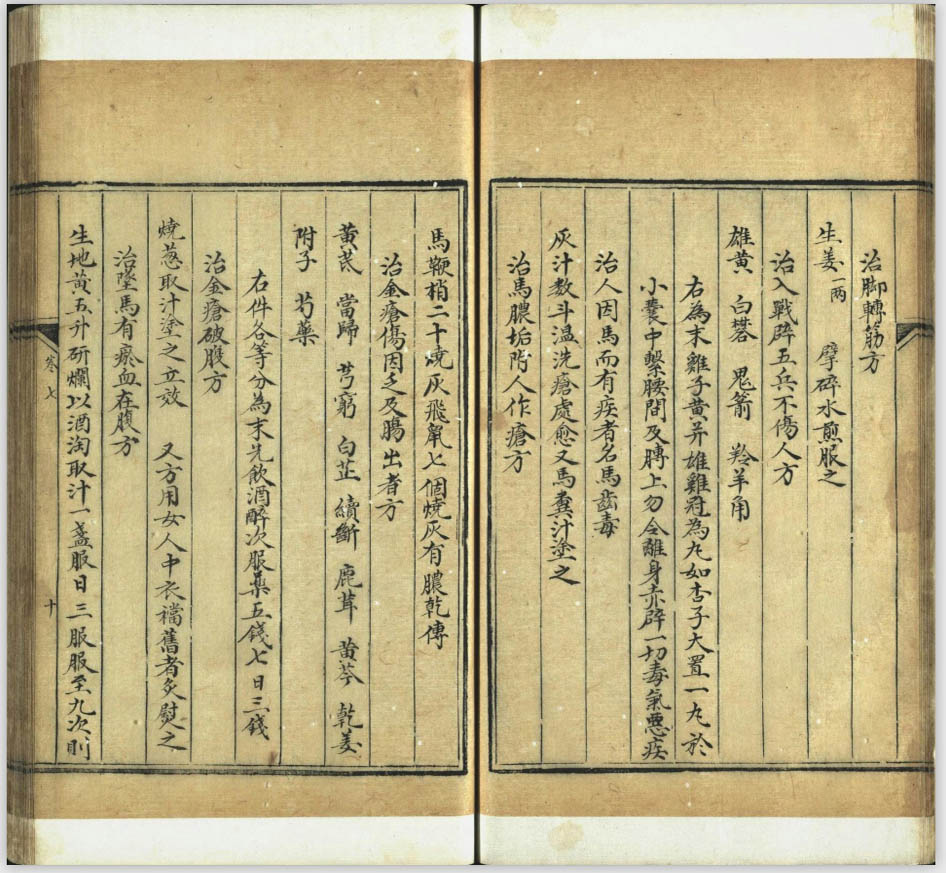 治脚轉筋方
生姜一兩　擘碎水煎服之
治入戰辟五兵不傷人方
雄黄　白礬　鬼箭　羚羊角
右為末雞子黄并雄雞冠為丸如杏子大置一丸於
小囊中繫腰間及膊上勿令離身亦辟一切毒氣惡疾
治人因馬而有疾者名馬齒毒
灰汁数斗温洗瘡處愈又馬糞汁塗之
治馬膿垢附人作瘡方
馬鞭梢二十燒灰飛鼠七個燒灰有膿乾傅
治金瘡傷因乏及腸出者方
黄芪　當歸　芎窮　白芷　續斷　鹿茸　黄芩　乾姜
附子　芍藥
右件各等分為末先飲酒醉次服藥五錢七日三錢
治金瘡破腹方
燒葱取汁塗之立效　又方用女人中衣襠舊者炙熨之
治墜馬有瘀血在腹方
生地黄五升研爛以酒淘取汁一盞服日三服服至九次則
卷七
十